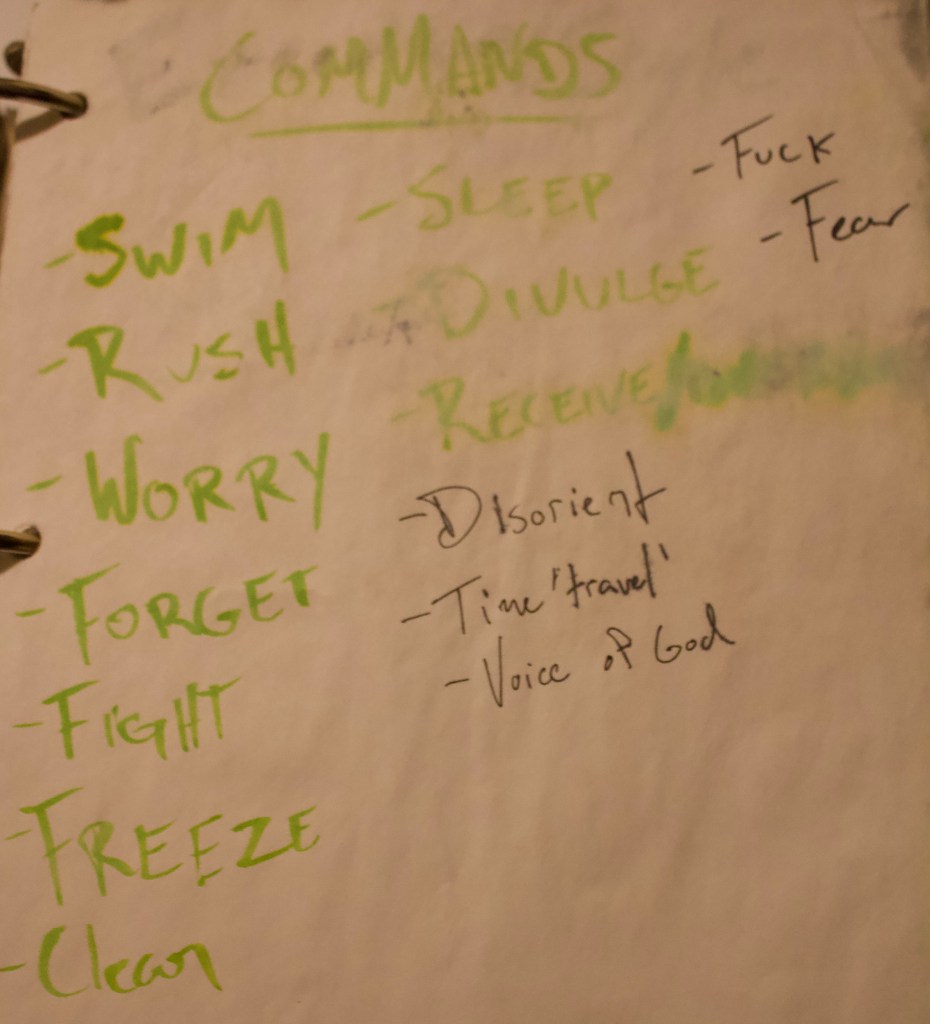 COMMANDS
- SWIM
- RUSH
- WORRY
- FORGET
- FIGHT
- FREEZE
- Clean
- SLEEP
- DIVULGE
- RECEIVE/
- DIsorient
- Time 'travel'
- Voice of God
- Fuck
- Fear